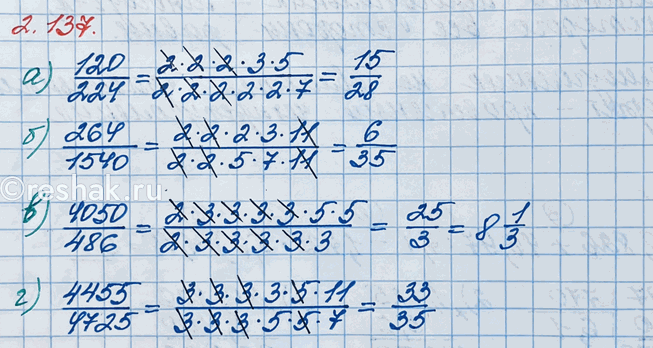 2.137.
а) 120/224 = 2·2·2·3·5/2·2·2·2·2·7 = 15/28
б) 264/1540 = 2·2·2·3·11/2·2·5·7·11 = 6/35
в) 4050/486 = 2·3·3·3·3·5·5/2·3·3·3·3·3 = 25/3 = 8 1/3
г) 4455/4725 = 3·3·3·3·5·11/3·3·3·5·5·7 = 33/35
©reshak.ru